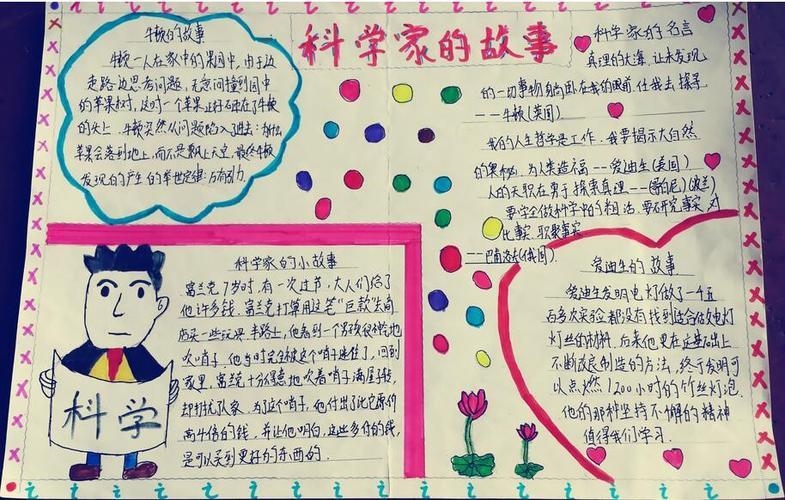 科学家的故事
牛顿的故事
牛顿一人在家中的果园中,由于边
走路边思考问题,无意间撞到园中
的苹果树,这时一个苹果正好砸在了牛顿
的头上,牛顿突然从问题陷入了进去:为什么
苹果会落到地上,而不是飘上天空,最终牛顿
发现的产生的举世定律:万有引力。
科学家的名言
真理的大海,让未发现
的一切事物躺卧在我的眼前,任我去探寻
——牛顿(英国)
我的人生哲学是工作,我要揭示大自然
的奥秘,为人类造福——爱迪生(美国)
人的天职在勇于探索真理——(哥白尼)(波兰)
要学会做科学中的粗活,要研究事实,对
比事实,积聚事实
——巴甫洛夫(俄国)
科学家的小故事
富兰克7岁时,有一次过节,大人们给了
他许多钱,富兰克打算用这笔“巨款”去商
店买一些玩具,半路上,他看到一个男孩
吹哨子,他当时完全被这个哨子迷住了,回到
家里,富兰克十分得意地吹着哨子满屋转,
却打扰了人家,为了这个哨子,他付出了比它原价
高4倍的钱,并让他明白,这些多付的钱,
是可以买到更好的东西的.
科学
爱迪生的故事
爱迪生发明电灯做了一千五
百多次实验都没有找到适合做电灯
灯丝的材料,后来他更在这基础上
不断改良制造的方法,终于发明可
以点燃1200小时的竹丝灯泡.
他的那种坚持不懈的精神
值得我们学习.